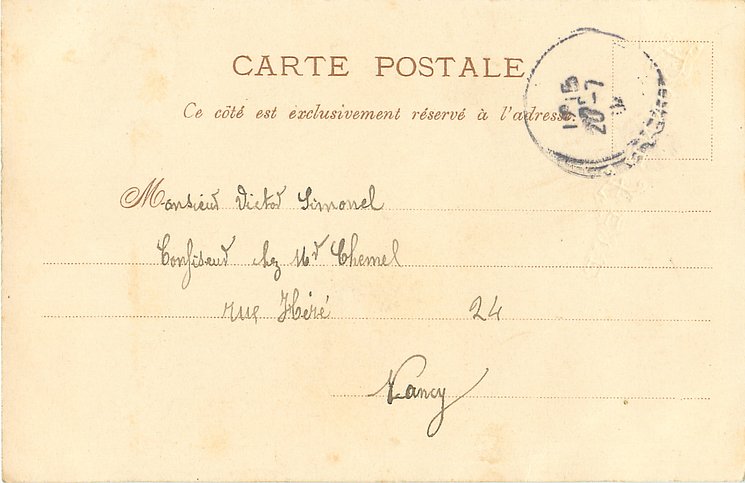 CARTE POSTALE
Ce côté est exclusivement réservé à l'adresse.
Monsieur Victor Simonel
Confiseur chez Md Chemel
rue Héré 24
Nancy
20-7